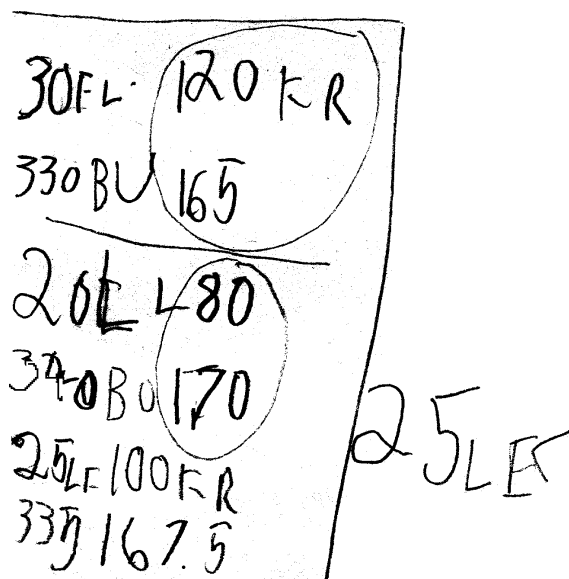 30FL. 120 KR
330 BU 165
20 L 80
340 BU 170
25LE 100 KR
335 167.5
25 LEK